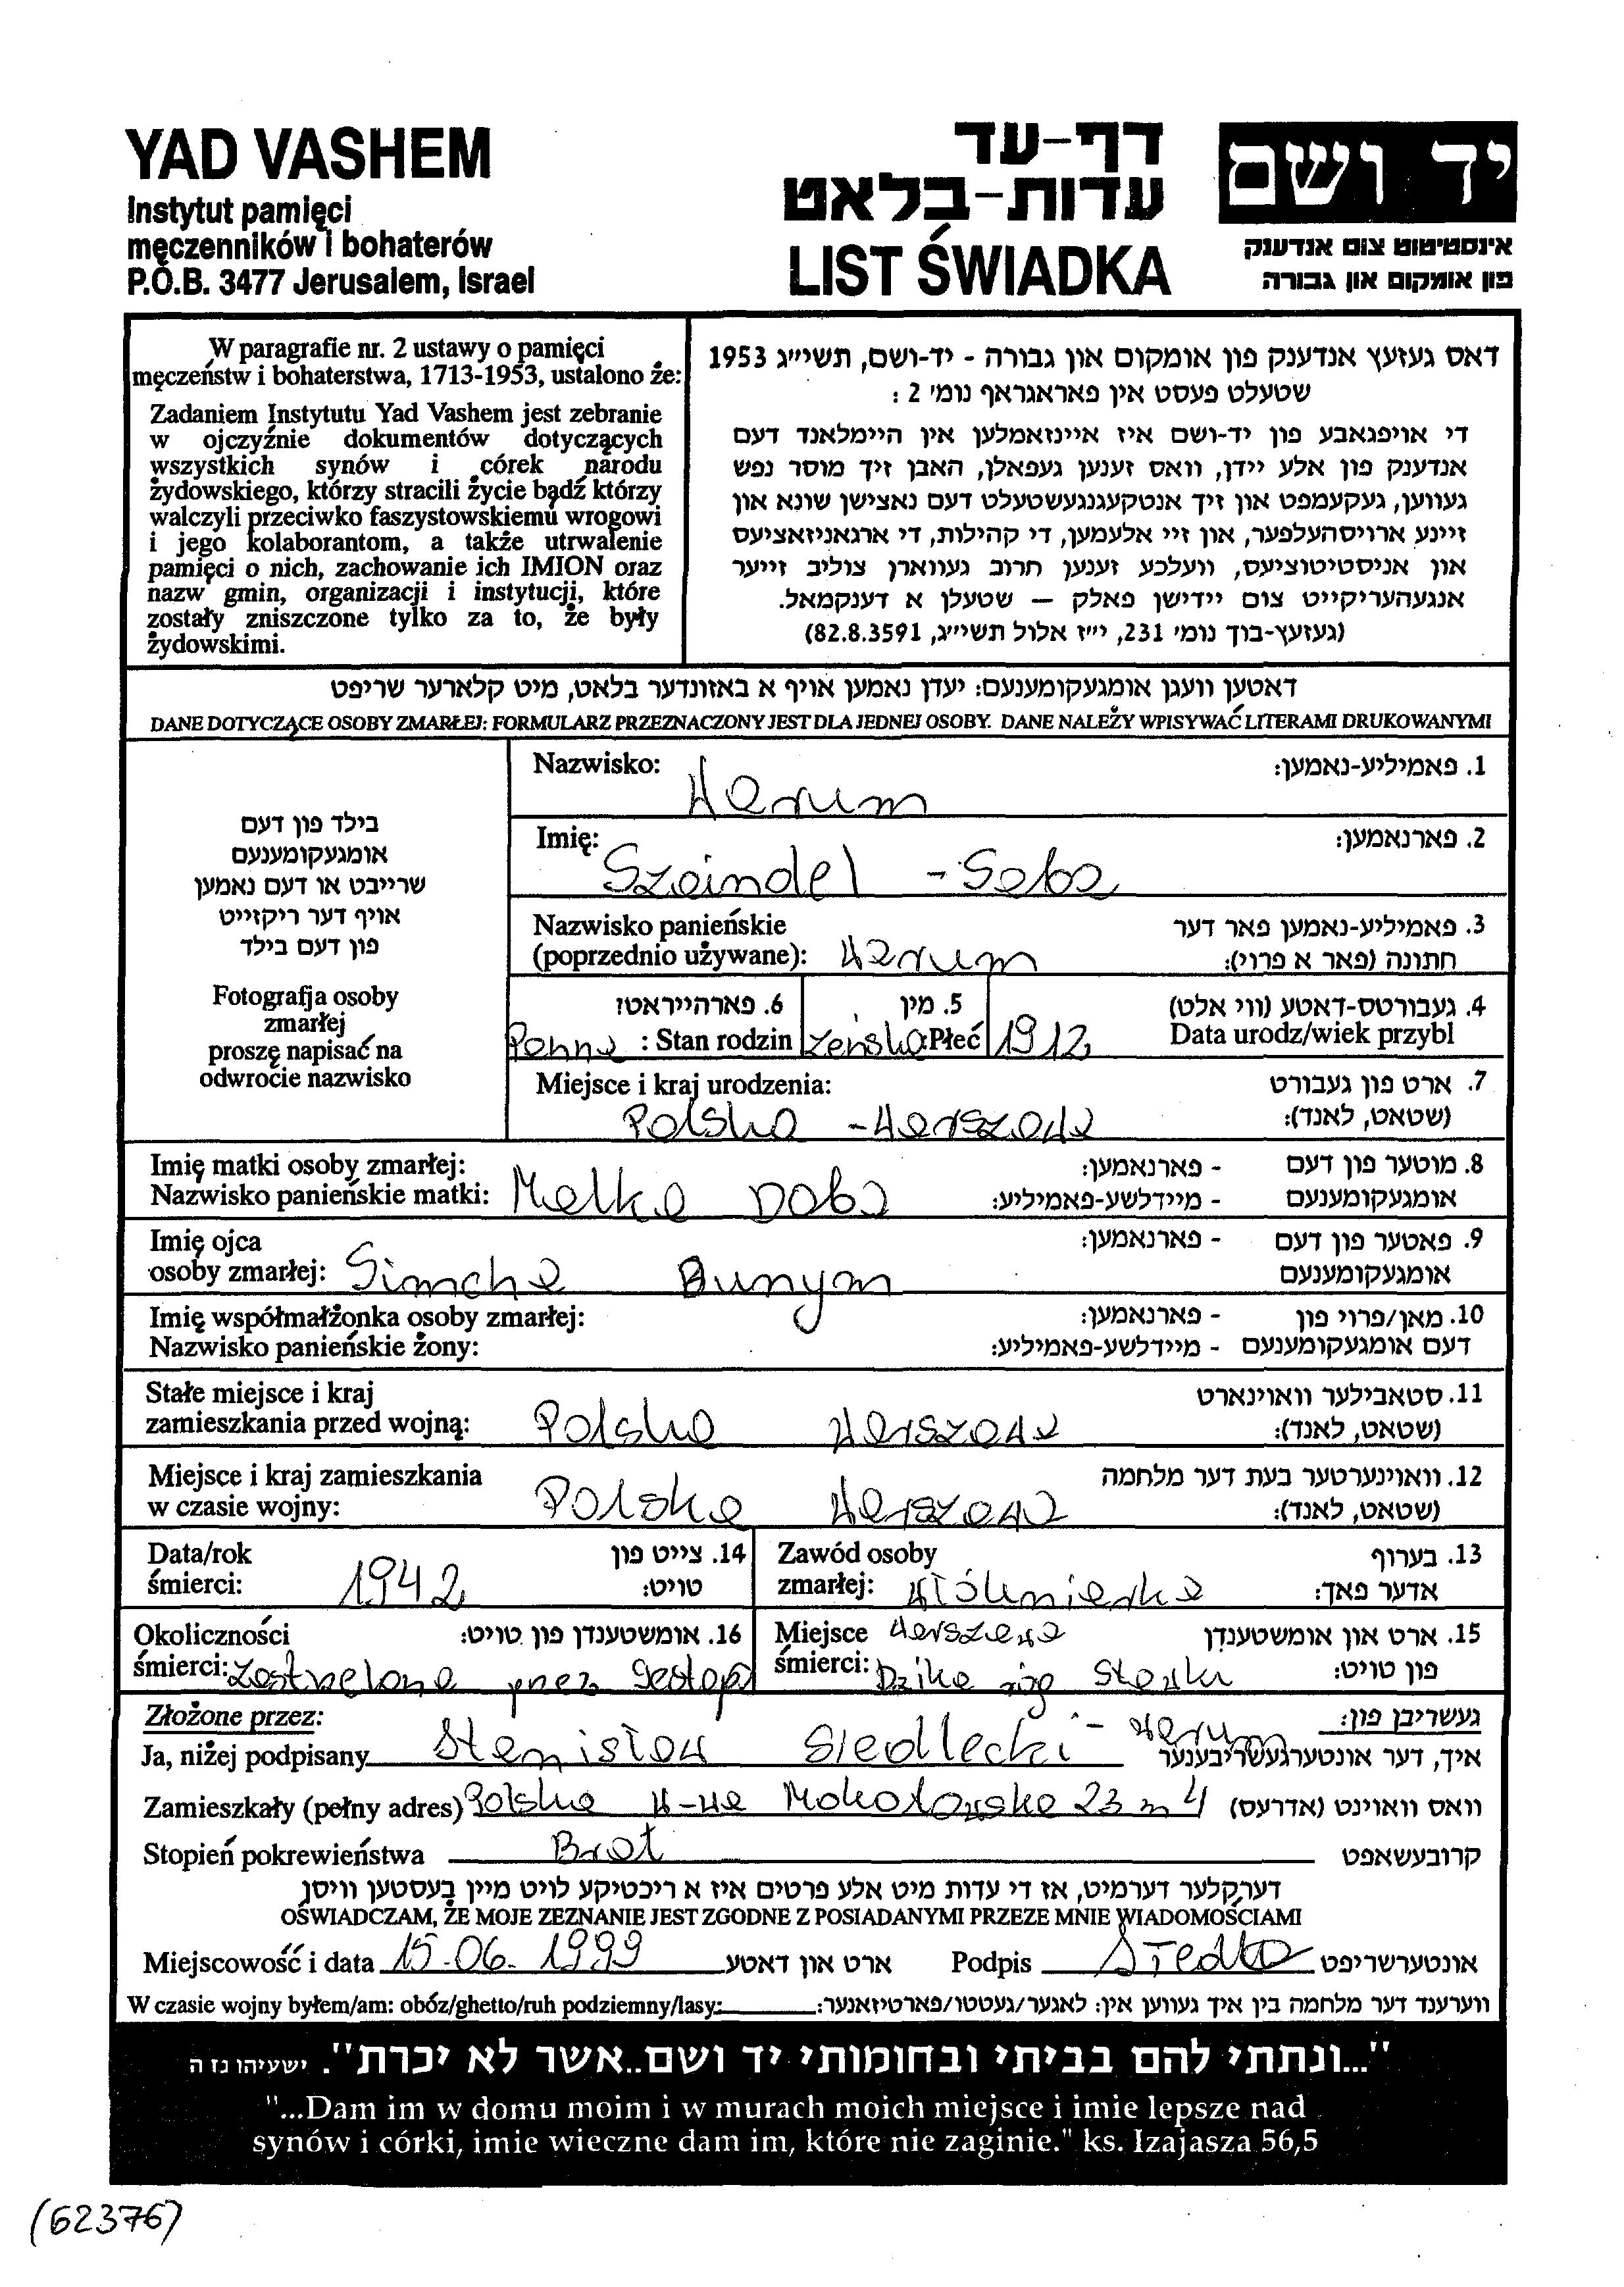 YAD VASHEM
Instytut pamięci
męczenników i bohaterów
P.O.B. 3477 Jerusalem, Israel
דף-עד
עדות-בלאט
LIST ŚWIADKA
יד ושם
אינסטיטוט צום אנדענק
פון אומקום און גבורה
W paragrafie nr. 2 ustawy o pamięci
męczeństw i bohaterstwa, 1713-1953, ustalono że:
Zadaniem Instytutu Yad Vashem jest zebranie
w ojczyźnie dokumentów dotyczących
wszystkich synów i córek narodu
żydowskiego, którzy stracili życie bądź którzy
walczyli przeciwko faszystowskiemu wrogowi
i jego kolaborantom, a także utrwalenie
pamięci o nich, zachowanie ich IMION oraz
nazw gmin, organizacji i instytucji, które
zostały zniszczone tylko za to, że były
żydowskimi.
דאס געזעץ אנדענק פון אומקום און גבורה - יד-ושם, תשי״ג 1953
שטעלט פעסט אין פאראגראף נומ׳ 2 :
די אויפגאבע פון יד-ושם איז איינזאמלען אין היימלאנד דעם
אנדענק פון אלע יידן, וואס זענען געפאלן, האבן זיך מוסר נפש
געווען, געקעמפט און זיך אנטקעגנגעשטעלט דעם נאצישן שונא און
זיינע ארויסהעלפער, און זיי אלעמען, די קהילות, די ארגאניזאציעס
און אניסטיטוציעס, וועלכע זענען חרוב געווארן צוליב זייער
אנגעהעריקייט צום יידישן פאלק – שטעלן א דענקמאל.
(געזעץ-בוך נומ׳ 231, י״ז אלול תשי״ג, 82.8.3591)
דאטען וועגן אומגעקומענעם: יעדן נאמען אויף א באזונדער בלאט, מיט קלארער שריפט
DANE DOTYCZĄCE OSOBY ZMARŁEJ: FORMULARZ PRZEZNACZONY JEST DLA JEDNEJ OSOBY. DANE NALEŻY WPISYWAĆ LITERAMI DRUKOWANYMI
בילד פון דעם
אומגעקומענעם
שרייבט או דעם נאמען
אויף דער ריקזייט
פון דעם בילד
Fotografja osoby
zmarłej
proszę napisać na
odwrocie nazwisko
Nazwisko: Warum 1. פאמיליע-נאמען:
Imię: Szaindel - Saba 2. פארנאמען:
Nazwisko panieńskie 3. פאמיליע-נאמען פאר דער
(poprzednio używane): Warum חתונה (פאר א פרוי):
6. פארהייראט? 5. מין 4. געבורטס-דאטע (ווי אלט)
Panna : Stan rodzin żeńska :Płeć 1912 Data urodz/wiek przybl
Miejsce i kraj urodzenia: 7. ארט פון געבורט
Polska - Warszawa (שטאט, לאנד):
Imię matki osoby zmarłej: 8. מוטער פון דעם - פארנאמען:
Nazwisko panieńskie matki: Malka Daba אומגעקומענעם - מיידלשע-פאמיליע:
Imię ojca 9. פאטער פון דעם - פארנאמען:
osoby zmarłej: Simcha Bunym אומגעקומענעם
Imię współmałżonka osoby zmarłej: 10. מאן/פרוי פון - פארנאמען:
Nazwisko panieńskie żony: דעם אומגעקומענעם - מיידלשע-פאמיליע:
Stałe miejsce i kraj 11. סטאבילער וואוינארט
zamieszkania przed wojną: Polska Warszawa (שטאט, לאנד):
Miejsce i kraj zamieszkania 12. וואוינערטער בעת דער מלחמה
w czasie wojny: Polska Warszawa (שטאט, לאנד):
Data/rok 14. צייט פון Zawód osoby 13. בערוף
śmierci: 1942 טויט: zmarłej: włókniarka אדער פאך:
Okoliczności 16. אומשטענדן פון טויט: Miejsce Warszawa 15. ארט און אומשטענדן
śmierci: Zastrzelona przez gestapo śmierci: Dzika róg Stawki פון טויט:
Złożone przez: געשריבן פון:
Ja, niżej podpisany Stanisław Siedlecki - Warum איך, דער אונטערגעשריבענער
Zamieszkały (pełny adres) Polska W-wa Mokotowska 23 m 4 וואס וואוינט (אדרעס)
Stopień pokrewieństwa Brat קרובעשאפט
דערקלער דערמיט, אז די עדות מיט אלע פרטים איז א ריכטיקע לויט מיין בעסטען וויסן
OŚWIADCZAM, ŻE MOJE ZEZNANIE JEST ZGODNE Z POSIADANYMI PRZEZE MNIE WIADOMOŚCIAMI
Miejscowość i data 15.06.1999 ארט און דאטע Podpis אונטערשריפט
W czasie wojny byłem/am: obóz/ghetto/ruh podziemny/lasy: ווערענד דער מלחמה בין איך געווען אין: לאגער/געטטו/פארטיזאנער:
"...ונתתי להם בביתי ובחומותי יד ושם..אשר לא יכרת". ישעיהו נז ה
"...Dam im w domu moim i w murach moich miejsce i imie lepsze nad
synów i córki, imie wieczne dam im, które nie zaginie." ks. Izajasza 56,5
(62376)